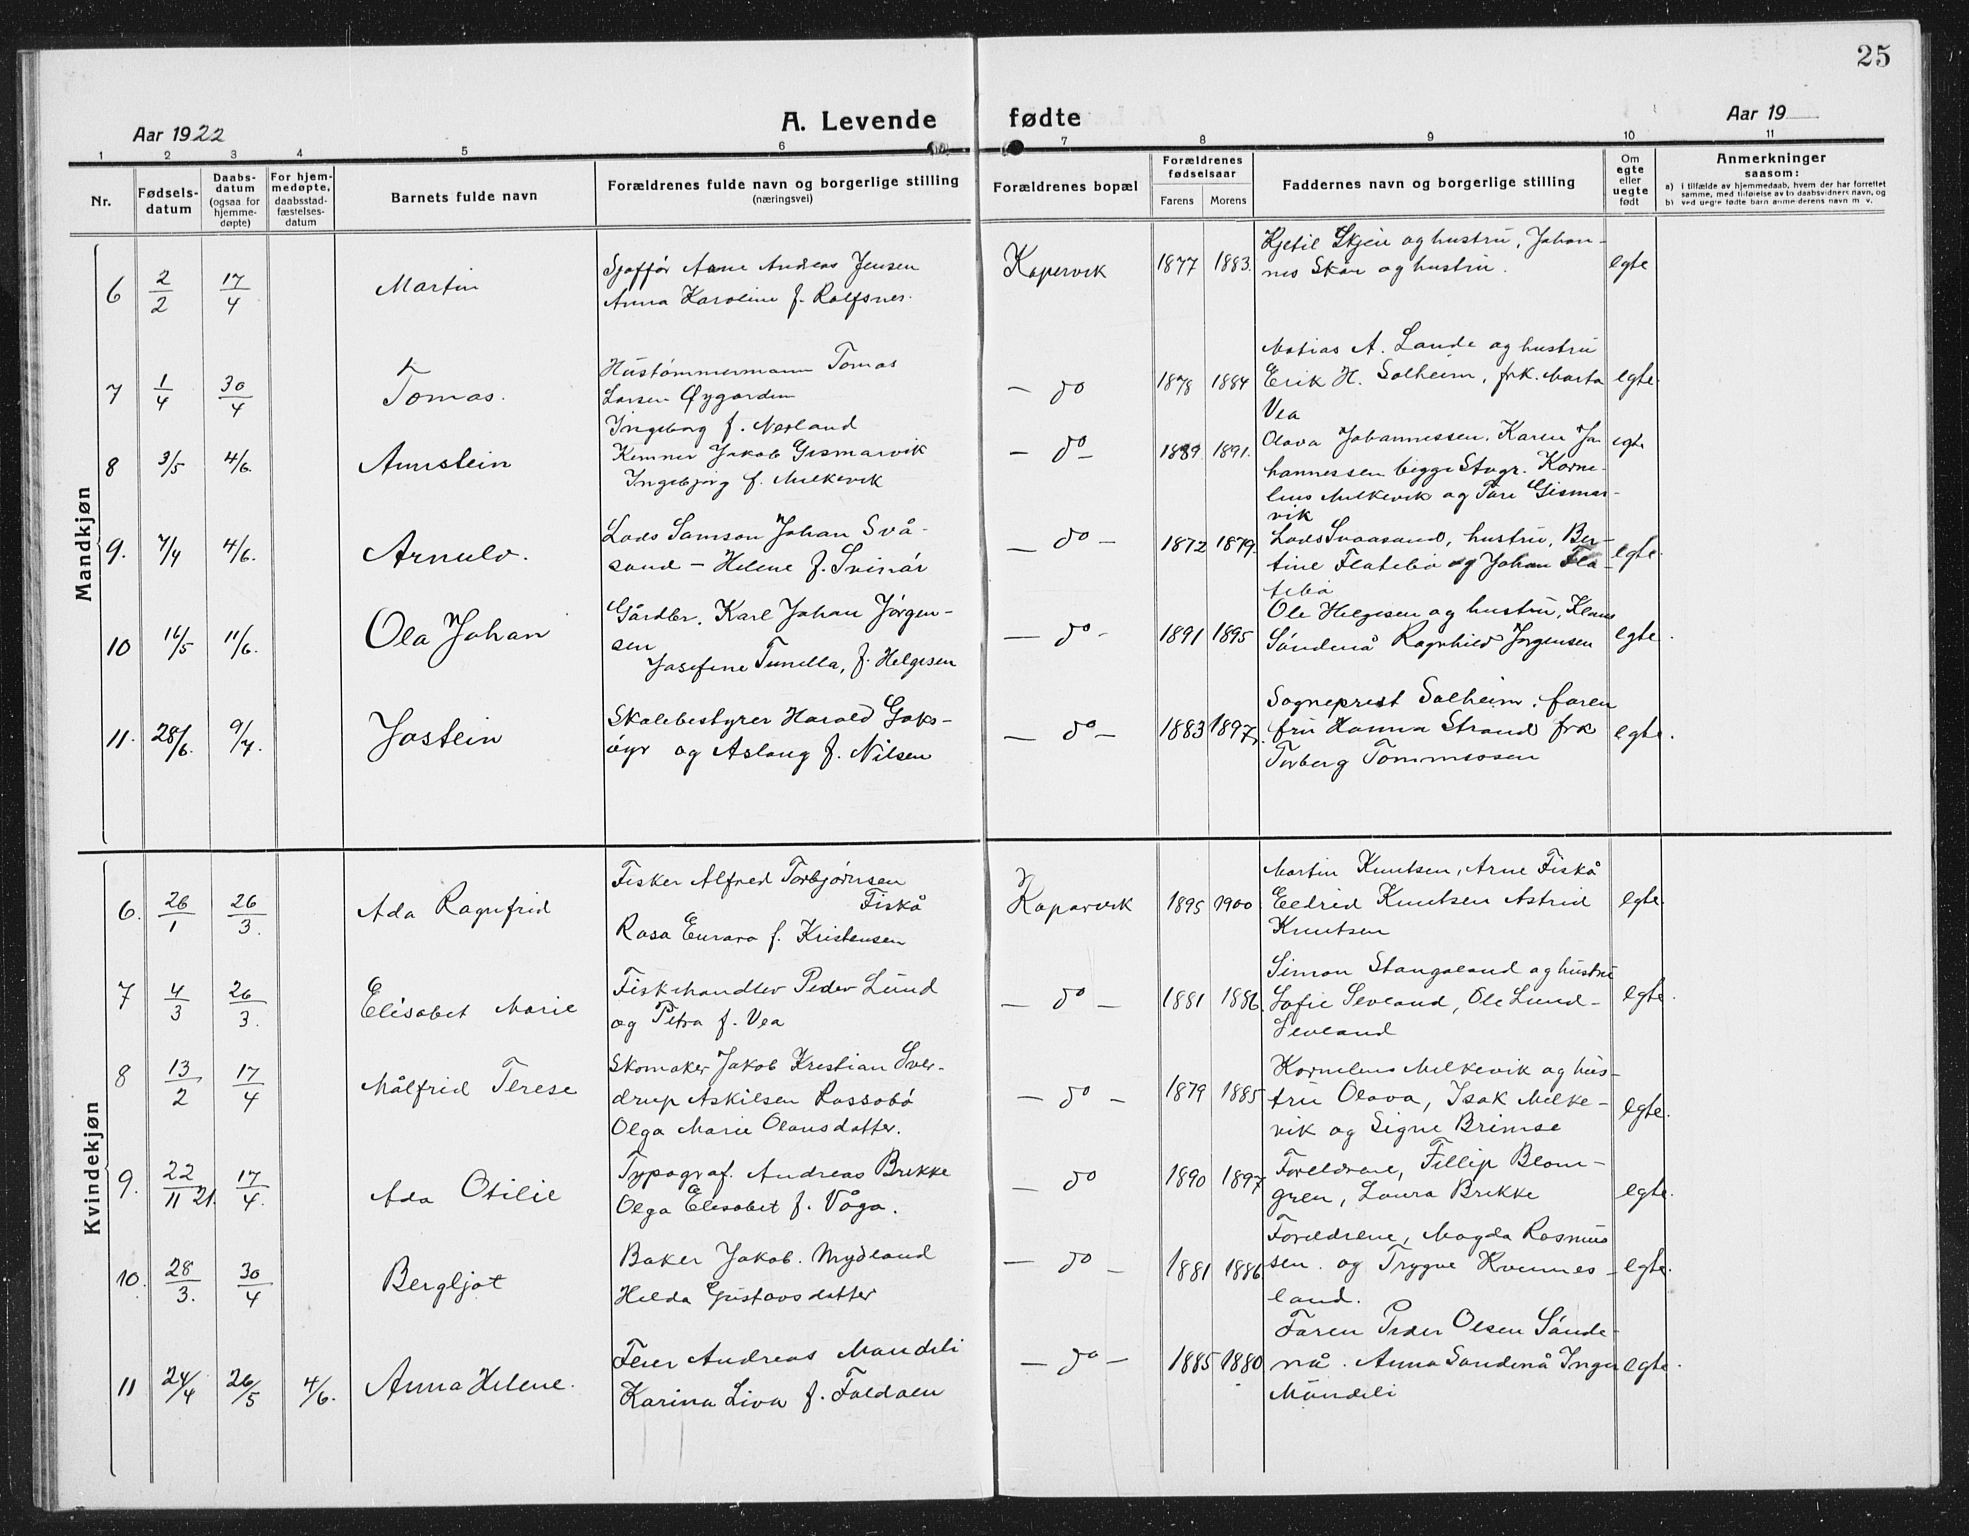 25
A. Levende fødte
Aar 1922
Aar 19
1 2 3 4 5 6 7 8 9 10 11
Nr.
Fødsels-
datum
Daabs-
datum
(ogsaa for
hjemme-
døpte)
For hjem-
medøpte,
daabsstad-
fæstelses-
datum
Barnets fulde navn
Forældrenes fulde navn og borgerlige stilling
(næringsvei)
Forældrenes bopæl
Forældrenes
fødselsaar
Farens Morens
Faddernes navn og borgerlige stilling
Om
egte
eller
uegte
født
Anmerkninger
saasom:
a) i tilfælde av hjemmedaab, hvem der har forrettet
samme, med tilføielse av to daabsvidners navn, og
b) ved uegte fødte barn anmelderens navn m. v.
Mandkjøn
6 2/2 17/4 Martin
Sjaffør Arne Andreas Jensen
Anna Karoline f. Rolfsnes.
Kopervik 1877 1883.
Kjetil Skjen og hustru, Johan-
nes Skår og hustru.
egte
7 1/4 30/4 Tomas.
Hustømmermann Tomas
Larsen Øygarden
Ingeborg f. Nerland
— do 1878 1884
Matias A. Lande og hustru
Erik H. Solheim, frk. Marta
Vea
egte.
8 3/5 4/6. Aunstein
Kemner Jakob Gismarvik
Ingebjørg f. Milkevik
— do — 1889 1891.
Olava Johannessen, Karen Jo
hannessen begge Stvgr. Korne-
lius Milkevik og Tore Gismar-
vik
egte
9. 7/4 4/6. Arnulv.
Lods Samson Johan Svå-
sand — Helene f. Svinór
— do — 1872 1879.
Lods Svaasand, hustru, Ber-
tine Flatebø og Johan Fla-
tebø
egte.
10 16/5 11/6. Ola Johan
Gårdbr. Karl Johan Jórgen-
sen
Josefine Tunella, f. Helgesen
— do — 1891 1895
Ole Helgesen og hustru, Klaus
Sóndenå Ragnhild Jørgensen
egte.
11. 28/6. 9/7. Jostein
Skolebestyrer Harald Goks-
óyr og Aslaug f. Nilsen
— do — 1883 1897.
Sogneprest Solheim, faren
fru Hanna Strand frk
Torberg Tommessen
egte.
Kvindekjøn
6. 26/1 26/3. Ada Ragnfrid
Fisker Alfred Torbjørnsen
Fiskå
Rosa Eurara f. Kristensen
Koparvik 1895 1900
Martin Knutsen, Arne Fiskå
Eldrid Knutsen Astrid
Knutsen
egte.
7 4/3 26/3. Elisabet Marie
Fiskehandler Peder Lund
og Petra f. Vea
— do — 1881 1886.
Simon Stangeland og hustru
Sofie Seveland, Ole Lund-
Seveland
egte.
8 13/2 17/4 Målfrid Terese
Skomaker Jakob Kristian Sver-
drup Askilsen Rossebó
Olga Marie Olausdatter.
— do — 1879 1885
Kornelius Milkevik og hus-
tru Olava, Isak Milke-
vik og Signe Brimse
egte.
9. 22/11 21. 17/4. Ada Otilie
Typograf. Andreas Brekke
Olga Elisabet f. Våga.
— do 1890 1897
Foreldrene, Fillip Blom-
gren, Laura Brekke
egte.
10. 28/3. 30/4 Bergljot
Baker Jakob. Mydland
Hilda Gustavsdatter
— do — 1881 1886.
Foreldrene, Magda Rasmus
sen. og Trygve Kvinnes-
land.
egte.
11 24/4 26/5 4/6. Anna Helene.
Feier Andreas Mandeli
Karina Liva f. Foldøen
— do — 1885 1880
Faren Peder Olsen Sónde-
nå. Anna Sondenå Inger
Mandeli
egte.